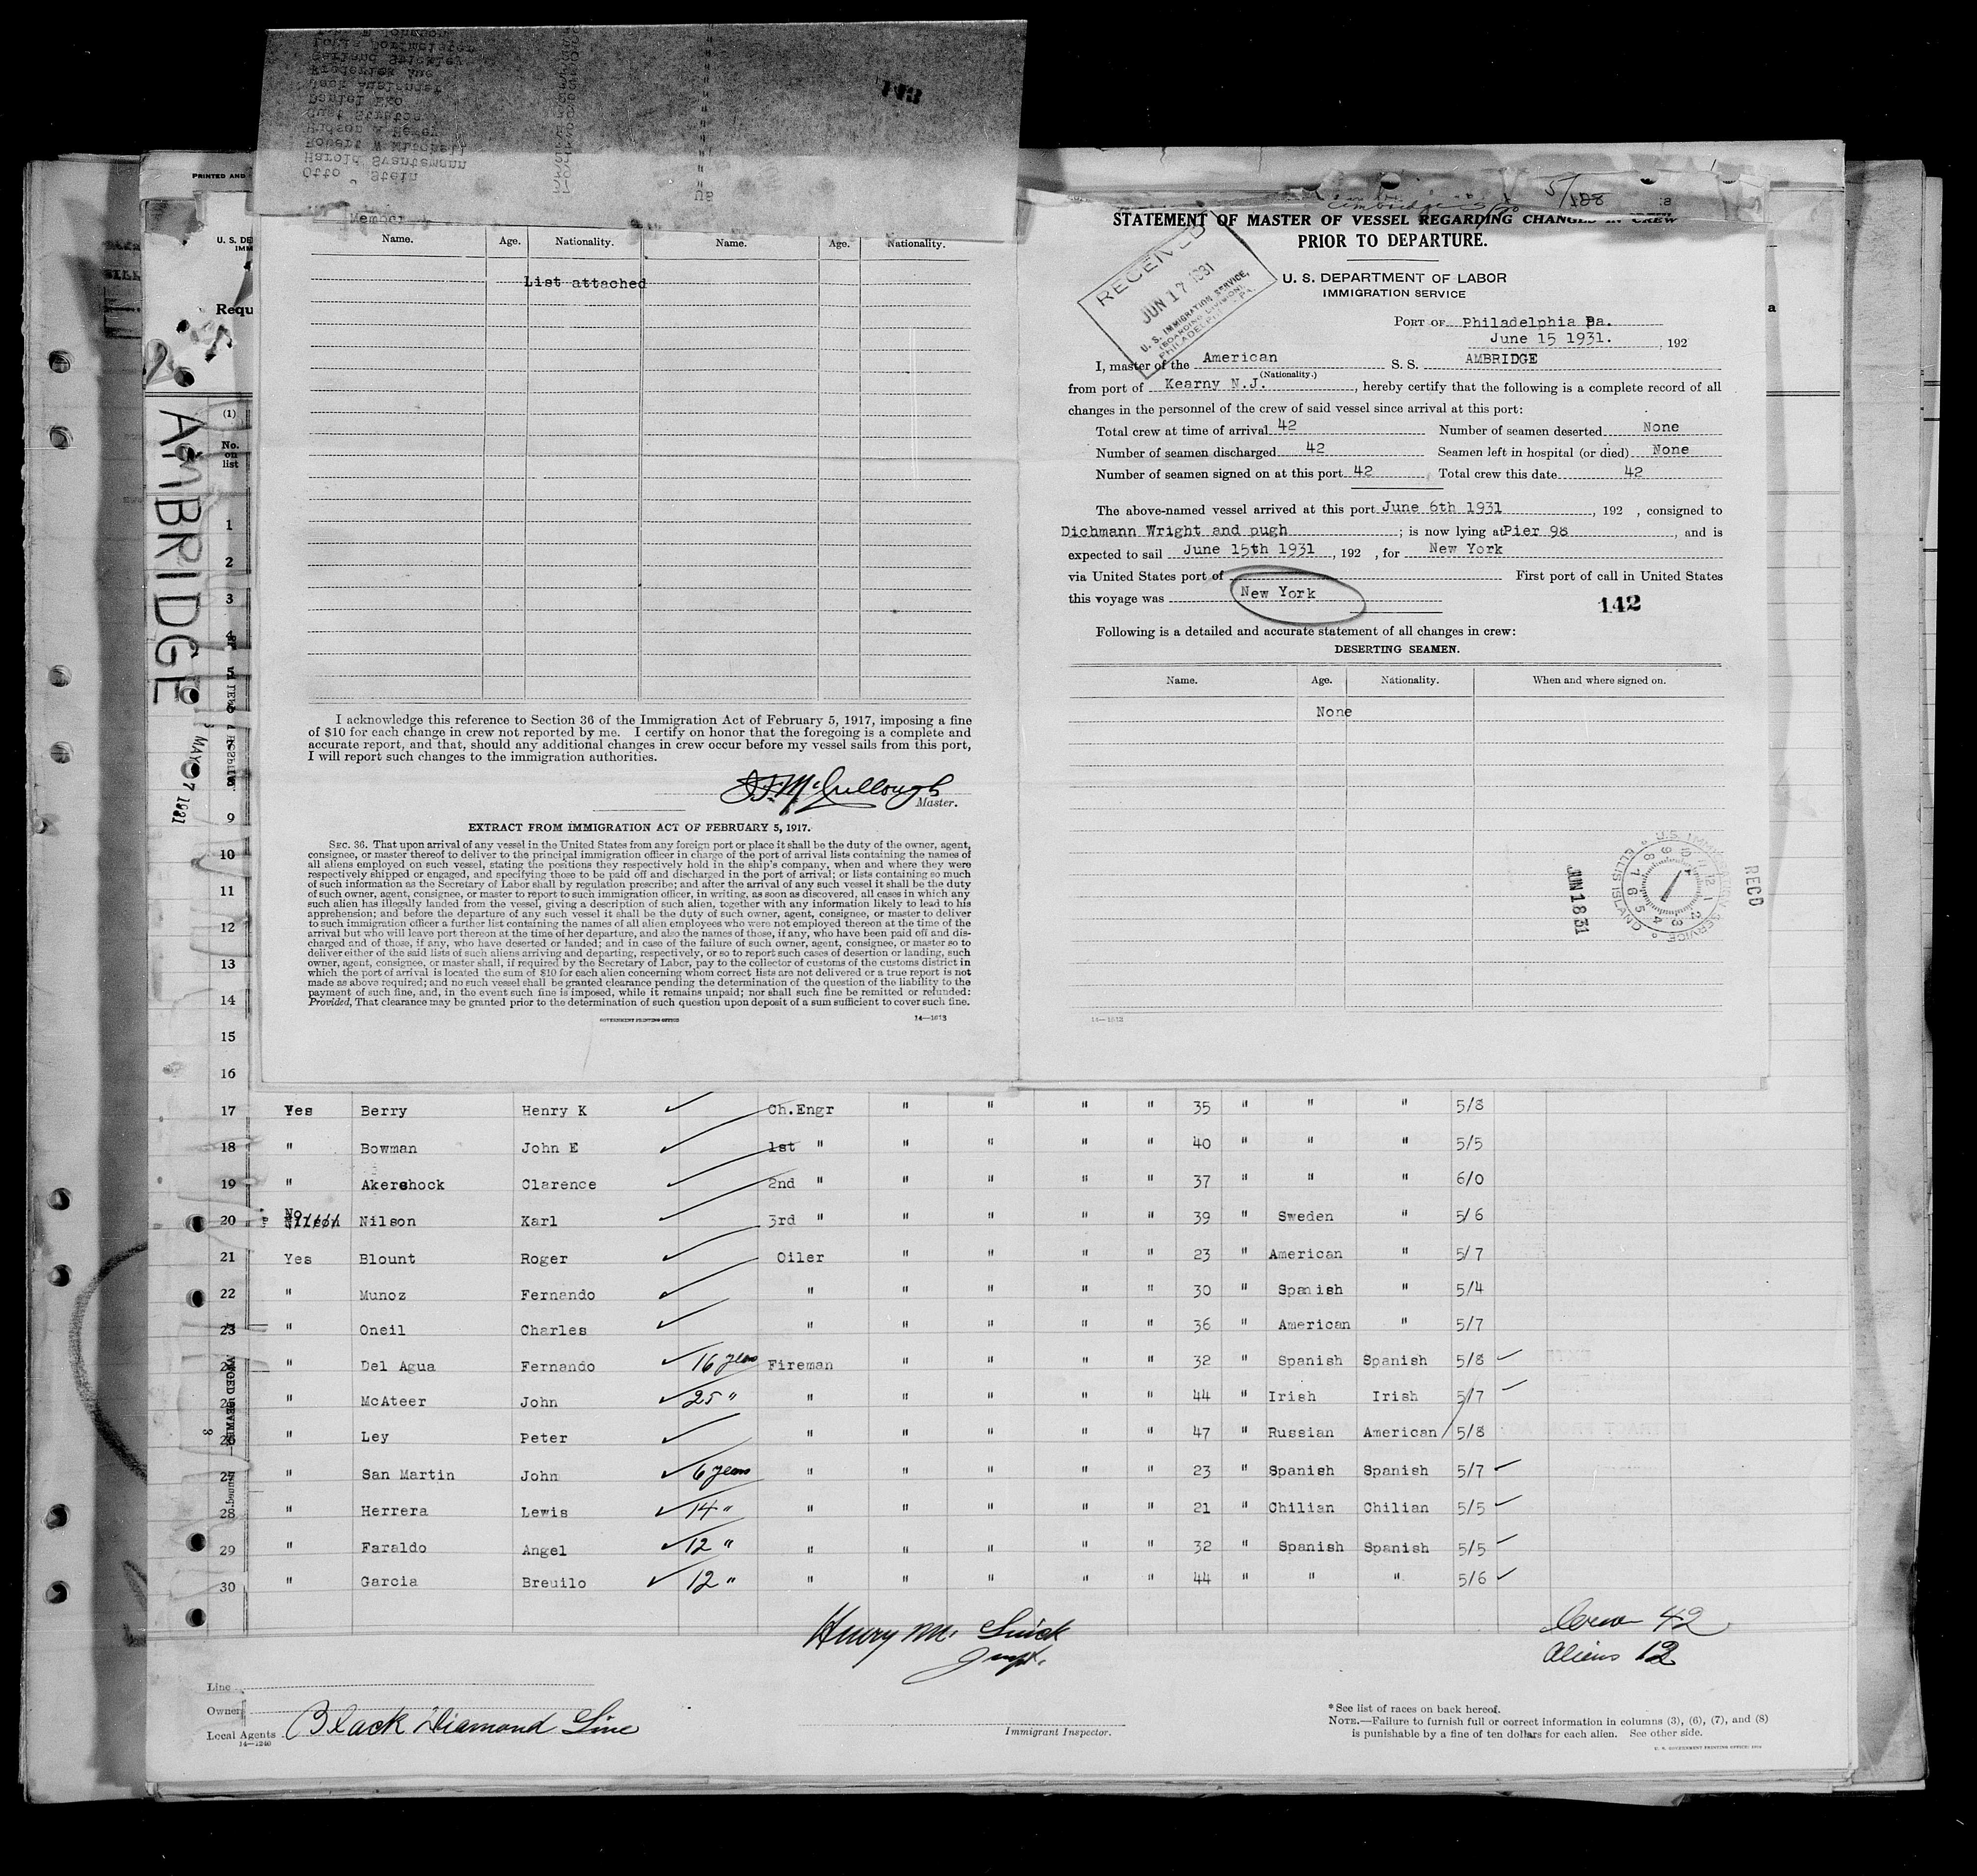 Otto Stein
Harold Svantemann
Robert W Mitchell
Hudson A Hemey
Daniel Eko
US
143
PRINTED AND
Member
Name. Age. Nationality. Name. Age. Nationality.
List attached
I acknowledge this reference to Section 36 of the Immigration Act of February 5, 1917, imposing a fine
of $10 for each change in crew not reported by me. I certify on honor that the foregoing is a complete and
accurate report, and that, should any additional changes in crew occur before my vessel sails from this port,
I will report such changes to the immigration authorities.
J.F. McCullough
Master.
EXTRACT FROM IMMIGRATION ACT OF FEBRUARY 5, 1917.
SEC. 36. That upon arrival of any vessel in the United States from any foreign port or place it shall be the duty of the owner, agent,
consignee, or master thereof to deliver to the principal immigration officer in charge of the port of arrival lists containing the names of
all aliens employed on such vessel, stating the positions they respectively hold in the ship's company, when and where they were
respectively shipped or engaged, and specifying those to be paid off and discharged in the port of arrival; or lists containing so much
of such information as the Secretary of Labor shall by regulation prescribe; and after the arrival of any such vessel it shall be the duty
of such owner, agent, consignee, or master to report to such immigration officer, in writing, as soon as discovered, all cases in which any
such alien has illegally landed from the vessel, giving a description of such alien, together with any information likely to lead to his
apprehension; and before the departure of any such vessel it shall be the duty of such owner, agent, consignee, or master to deliver
to such immigration officer a further list containing the names of all alien employees who were not employed thereon at the time of the
arrival but who will leave port thereon at the time of her departure, and also the names of those, if any, who have been paid off and dis-
charged and of those, if any, who have deserted or landed; and in case of the failure of such owner, agent, consignee, or master so to
deliver either of the said lists of such aliens arriving and departing, respectively, or so to report such cases of desertion or landing, such
owner, agent, consignee, or master shall, if required by the Secretary of Labor, pay to the collector of customs of the customs district in
which the port of arrival is located the sum of $10 for each alien concerning whom correct lists are not delivered or a true report is not
made as above required; and no such vessel shall be granted clearance pending the determination of the question of the liability to the
payment of such fine, and, in the event such fine is imposed, while it remains unpaid; nor shall such fine be remitted or refunded:
Provided, That clearance may be granted prior to the determination of such question upon deposit of a sum sufficient to cover such fine.
GOVERNMENT PRINTING OFFICE 14—1613
STATEMENT OF MASTER OF VESSEL REGARDING CHANGES IN CREW
PRIOR TO DEPARTURE.
RECEIVED
JUN 17 1931
U. S. IMMIGRATION SERVICE,
(BOARDING DIVISION),
PHILADELPHIA, PA.
U. S. DEPARTMENT OF LABOR
IMMIGRATION SERVICE
PORT OF Philadelphia Pa.
June 15 1931. , 192
I, master of the American S. S. AMBRIDGE
(Nationality.)
from port of Kearny N.J. , hereby certify that the following is a complete record of all
changes in the personnel of the crew of said vessel since arrival at this port:
Total crew at time of arrival 42 Number of seamen deserted None
Number of seamen discharged 42 Seamen left in hospital (or died) None
Number of seamen signed on at this port 42 Total crew this date 42
The above-named vessel arrived at this port June 6th 1931 , 192 , consigned to
Dichmann Wright and pugh ; is now lying at Pier 98 , and is
expected to sail June 15th 1931 , 192 , for New York
via United States port of First port of call in United States
this voyage was New York
142
Following is a detailed and accurate statement of all changes in crew:
DESERTING SEAMEN.
Name. Age. Nationality. When and where signed on.
None
U.S. IMMIGRATION SERVICE ELLIS ISLAND
JUN 18 31
RECD
14—1613
AMBRIDGE
MAY 7 1931
Requ
(1)
No. on list
1
2
3
4
9
10
11
12
13
14
15
16
17 Yes Berry Henry K Ch.Engr " " " " 35 " " " 5/8
18 " Bowman John E 1st " " " " " 40 " " " 5/5
19 " Akershock Clarence 2nd " " " " " 37 " " " 6/0
20 No Nilson Karl 3rd " " " " " 39 " Sweden " 5/6
21 Yes Blount Roger Oiler " " " " 23 " American " 5/7
22 " Munoz Fernando " " " " " 30 " Spanish " 5/4
23 " Oneil Charles " " " " " 36 " American " 5/7
24 " Del Agua Fernando 16 years Fireman " " " " 32 " Spanish Spanish 5/8
25 " McAteer John 25 " " " " " " 44 " Irish Irish 5/7
26 " Ley Peter " " " " " 47 " Russian American 5/8
27 " San Martin John 6 years " " " " " 23 " Spanish Spanish 5/7
28 " Herrera Lewis 14 " " " " " " 21 " Chilian Chilian 5/5
29 " Faraldo Angel 12 " " " " " " 32 " Spanish Spanish 5/5
30 " Garcia Breuilo 12 " " " " " " 44 " " " 5/6
Crew 42
Aliens 12
Line
Owner
Local Agents Black Diamond Line
14—1240
Immigrant Inspector.
* See list of races on back hereof.
NOTE.—Failure to furnish full or correct information in columns (3), (6), (7), and (8)
is punishable by a fine of ten dollars for each alien. See other side.